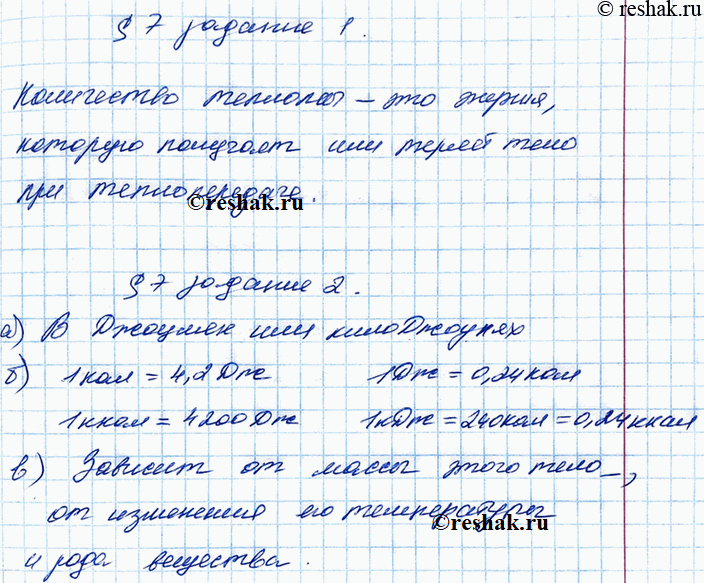 © reshak.ru
§ 7 задание 1.
Количество теплоты – это энергия,
которую получает или теряет тело
при теплопередаче.
©reshak.ru
§ 7 задание 2.
а) В Джоулях или килоДжоулях
б) 1кал = 4,2Дж 1Дж = 0,24кал
1ккал = 4200Дж 1кДж = 240кал = 0,24ккал
в) Зависит от массы этого тела,
от изменения его температуры
©reshak.ru
и рода вещества.